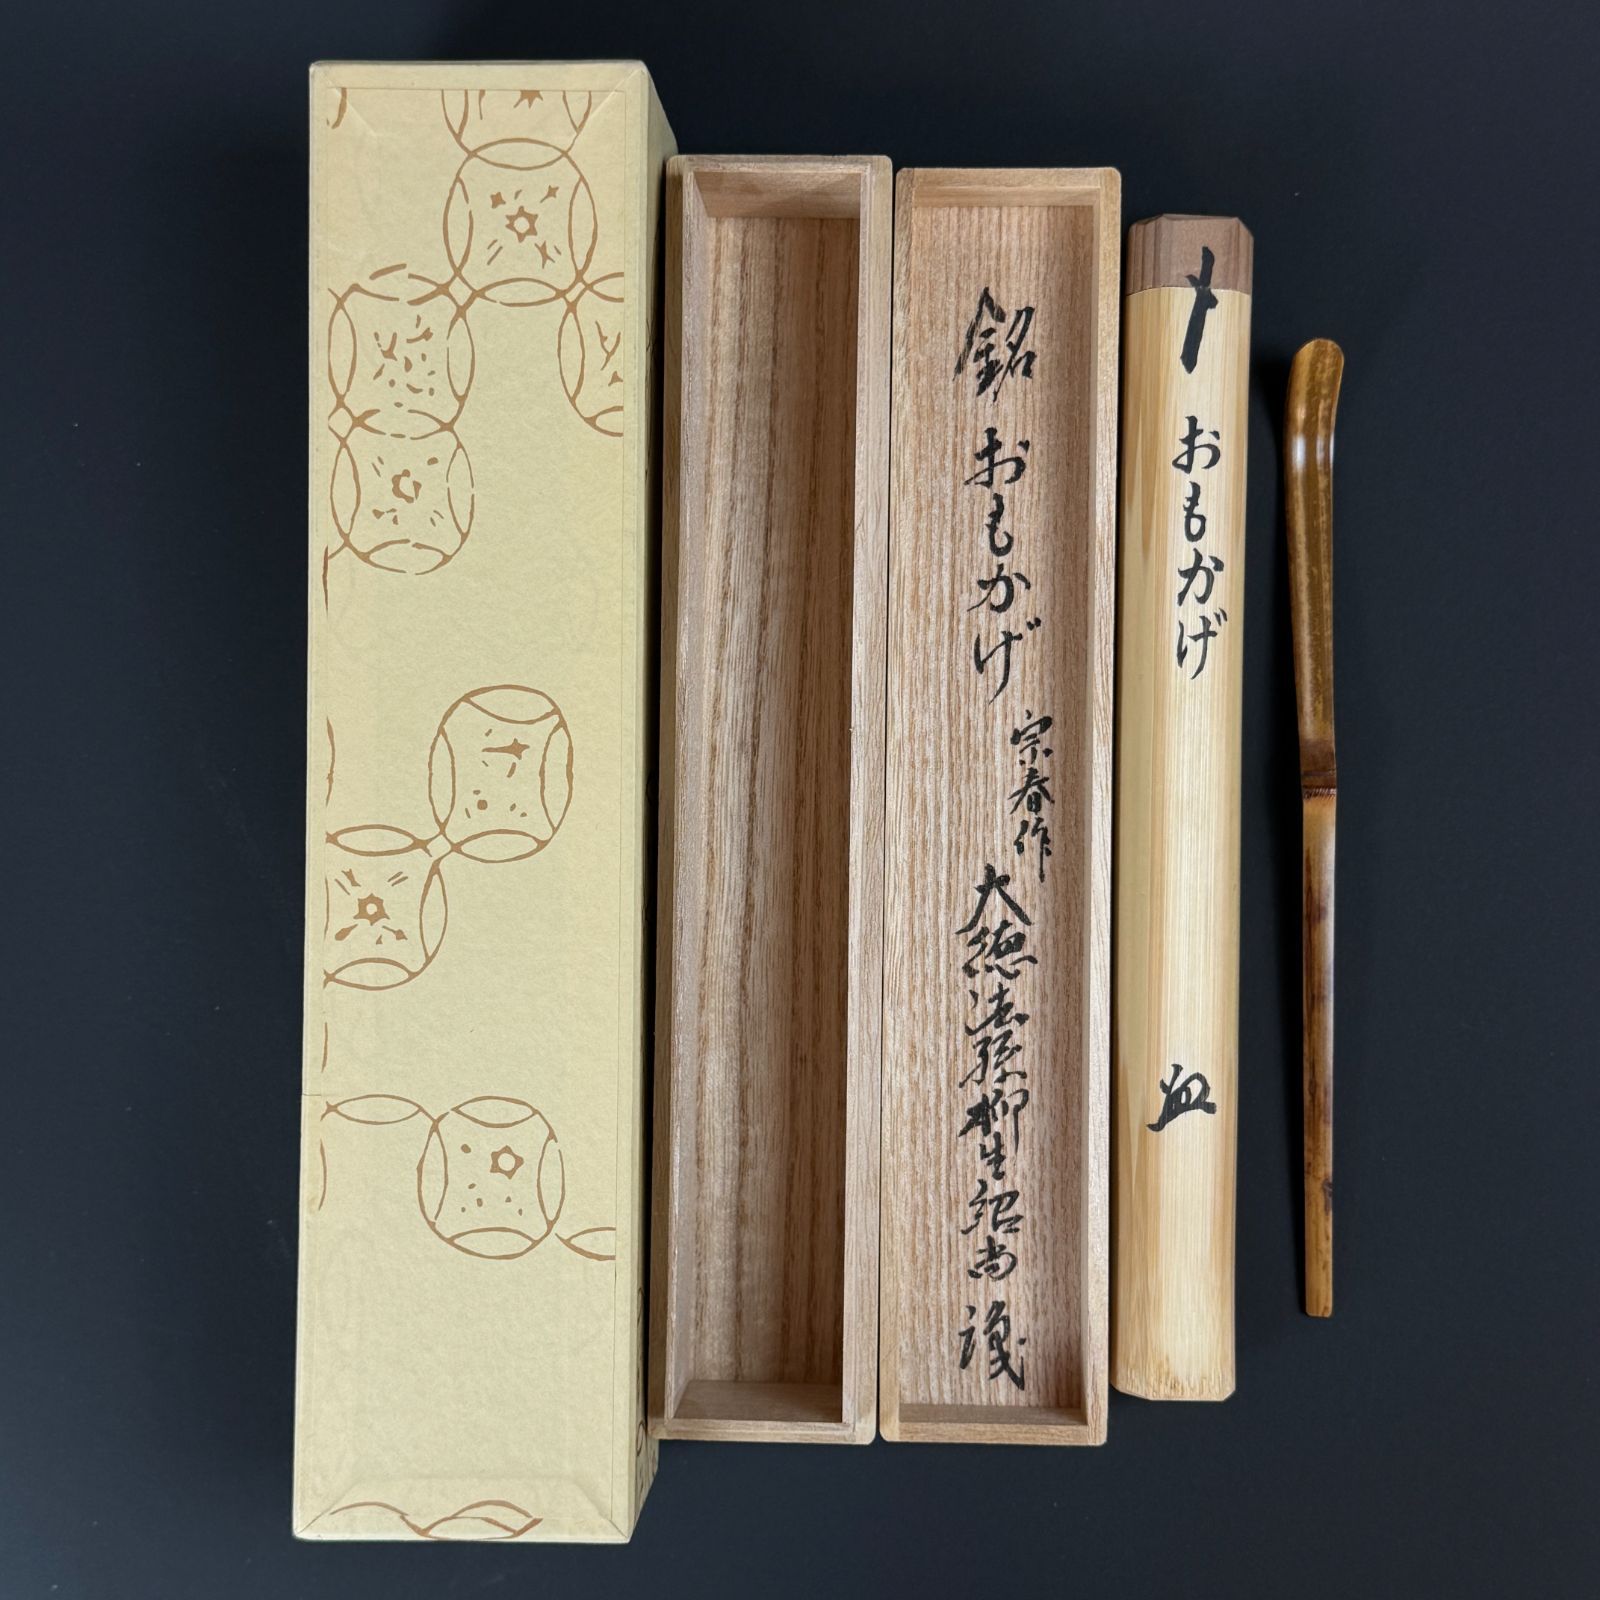 銘 おもかげ
宗春作
大徳法孫柳生紹尚 識
おもかげ